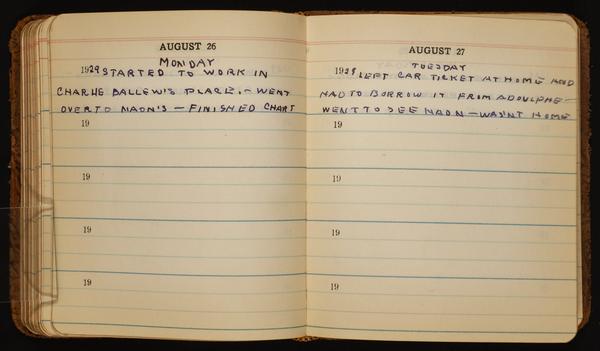 AUGUST 26
MONDAY
1929 STARTED TO WORK IN
CHARLIE BALLEW'S PLACE. - WENT
OVER TO NAON'S - FINISHED CHART
19
19
19
19
AUGUST 27
TUESDAY
1929 LEFT CAR TICKET AT HOME AND
HAD TO BORROW IT FROM ADOULPHE -
WENT TO SEE NAON - WASN'T HOME
19
19
19
19